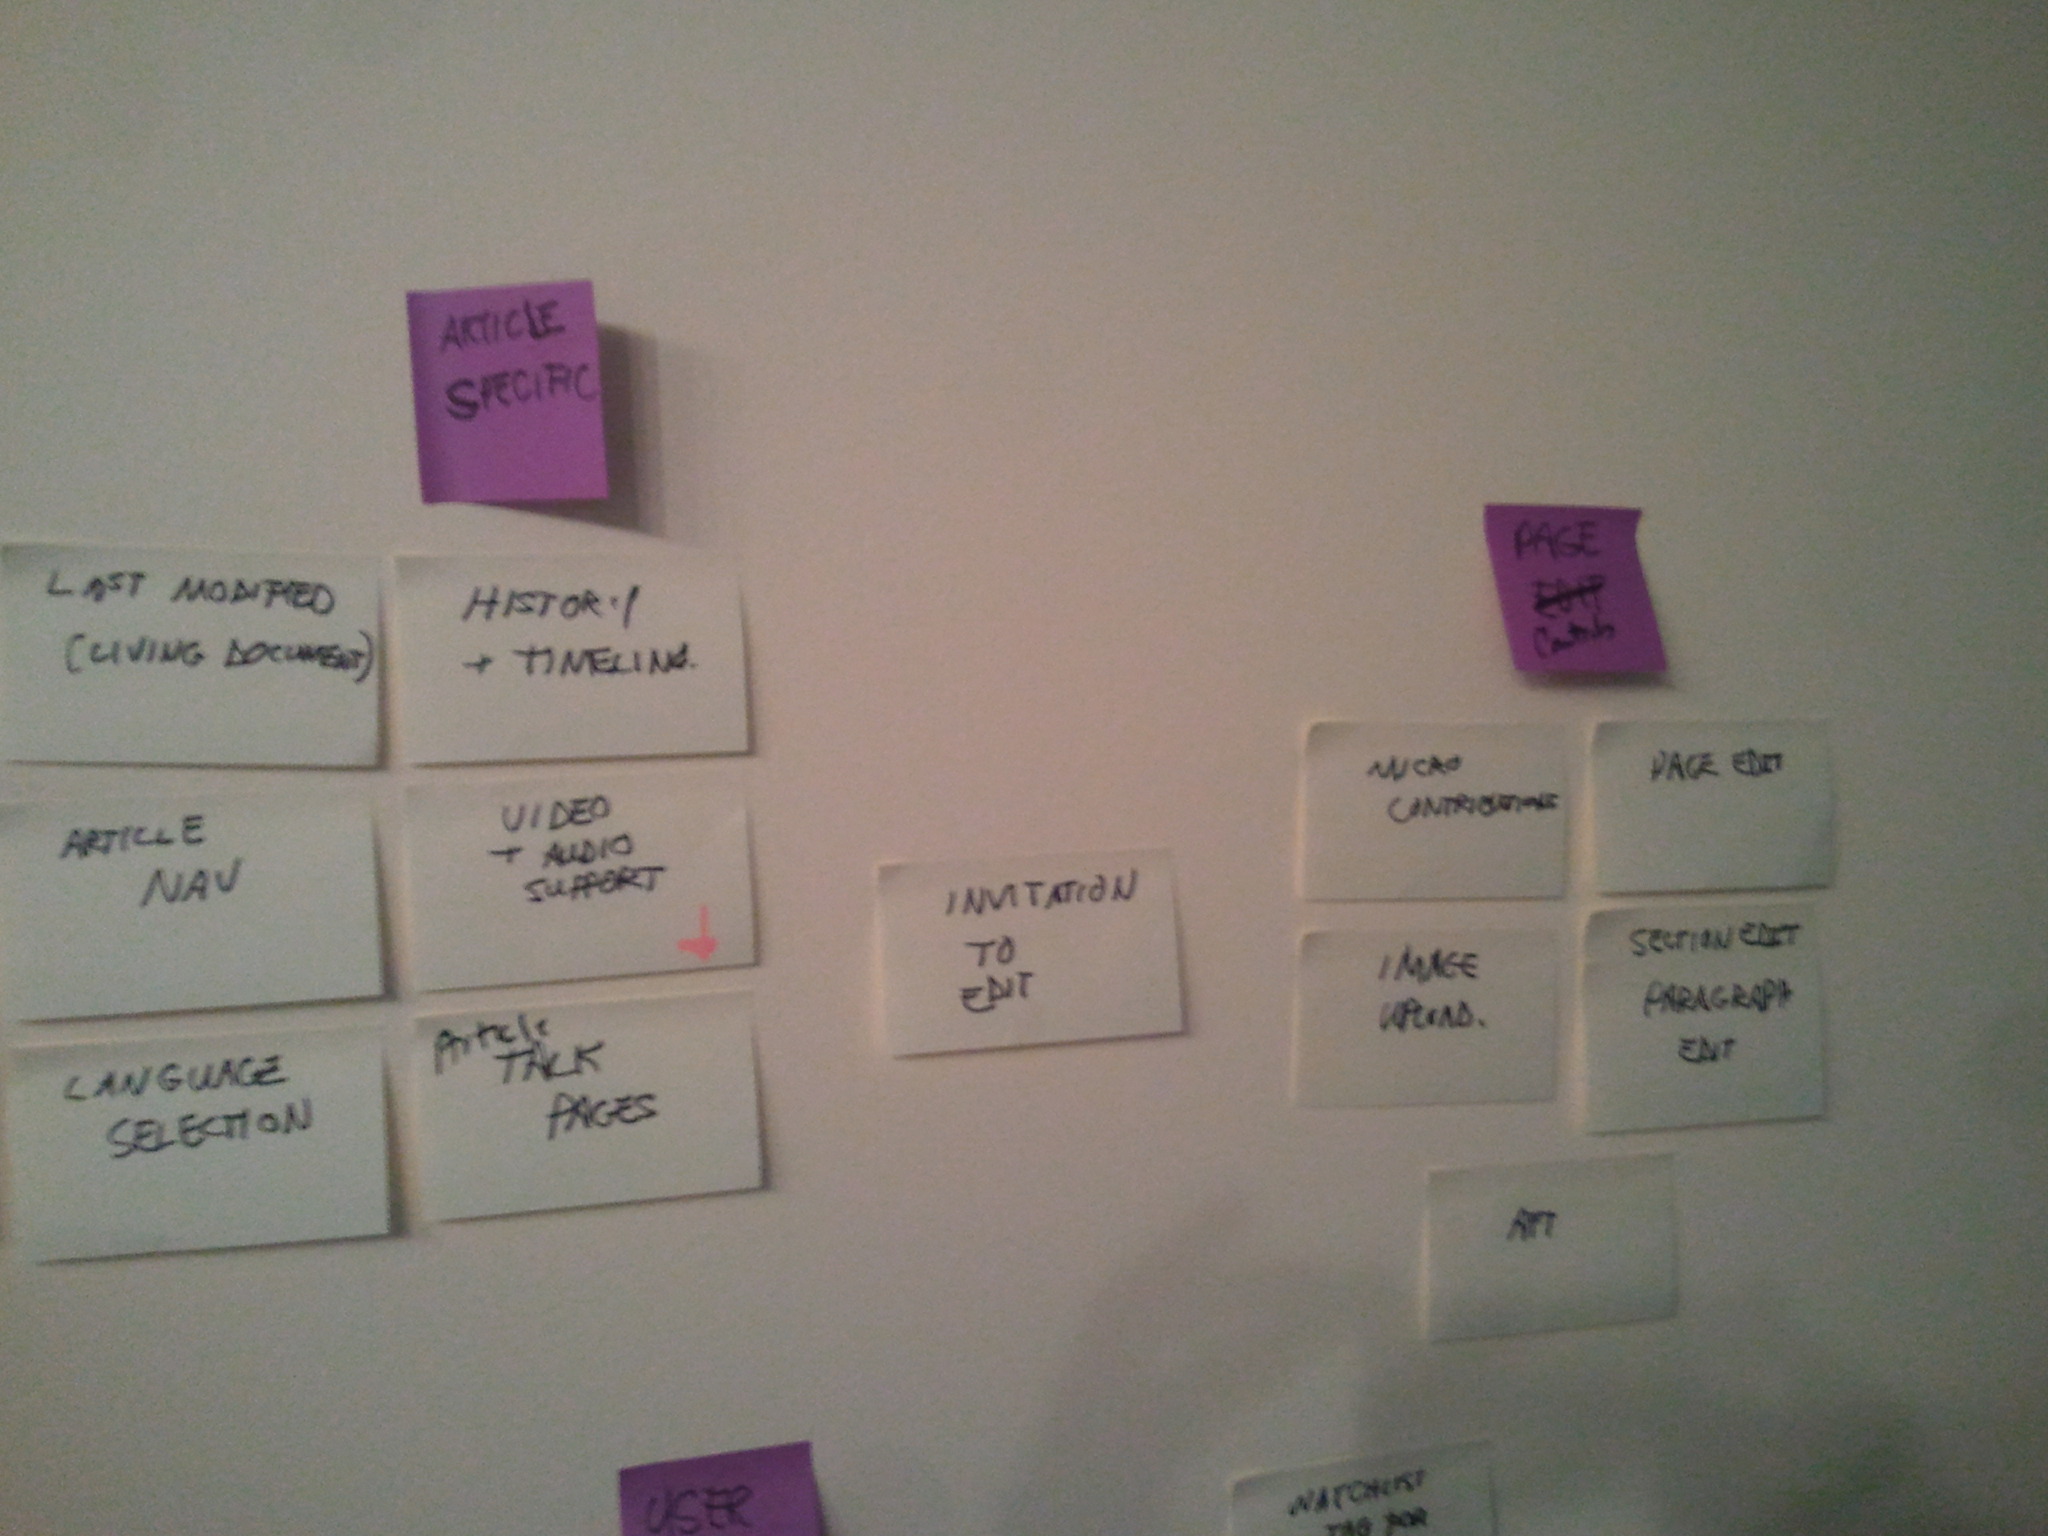 ARTICLE
SPECIFIC
LAST MODIFIED
(LIVING DOCUMENT)
HISTORY
+ TIMELINE.
ARTICLE
NAV
VIDEO
+ AUDIO
SUPPORT
LANGUAGE
SELECTION
Article
TALK
PAGES
INVITATION
TO
EDIT
PAGE
MICRO
CONTRIBUTIONS
PAGE EDIT
IMAGE
UPLOAD.
SECTION EDIT
PARAGRAPH
EDIT
AFT
USER
WATCHLIST
TAG FOR